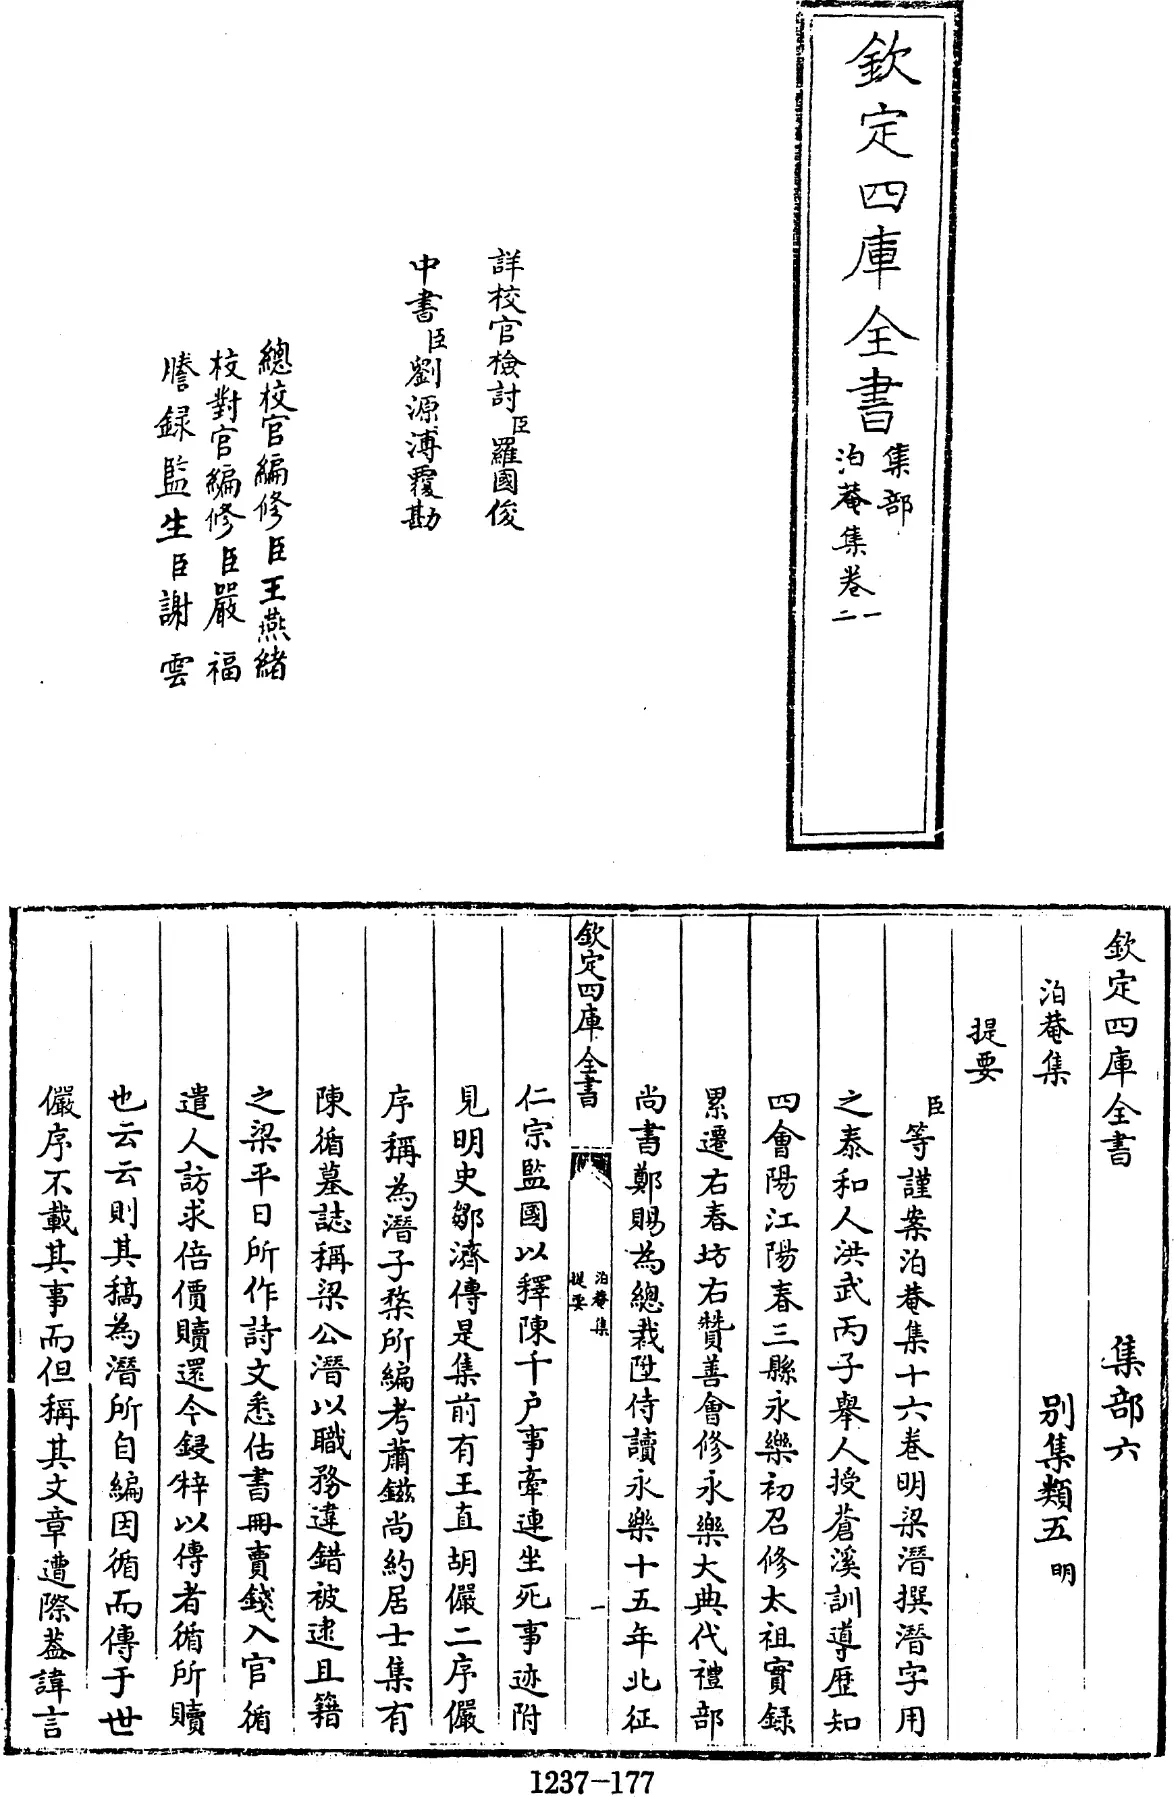 欽定四庫全書
集部
泊菴集卷一
二
詳校官檢討臣羅國俊
中書臣劉源溥覆勘
總校官編修臣王燕緒
校對官編修臣嚴福
謄錄監生臣謝雲
欽定四庫全書 集部六
泊菴集 別集類五明
提要
臣等謹案泊菴集十六卷明梁潛撰潛字用
之泰和人洪武丙子舉人授蒼溪訓導歷知
四會陽江陽春三縣永樂初召修太祖實録
累遷右春坊右贊善會修永樂大典代禮部
尚書鄭賜為總裁陞侍讀永樂十五年北征
欽定四庫全書
泊菴集
提要
一
仁宗監國以釋陳千户事牽連坐死事迹附
見明史鄒濟傳是集前有王直胡儼二序儼
序稱為潛子楘所編考蕭鎡尚約居士集有
陳循墓誌稱梁公潛以職務違錯被逮且籍
之梁平日所作詩文悉估書冊賣錢入官循
遣人訪求倍價贖還今鋟梓以傳者循所贖
也云云則其稿為潛所自編因循而傳于世
儼序不載其事而但稱其文章遭際葢諱言
1237-177